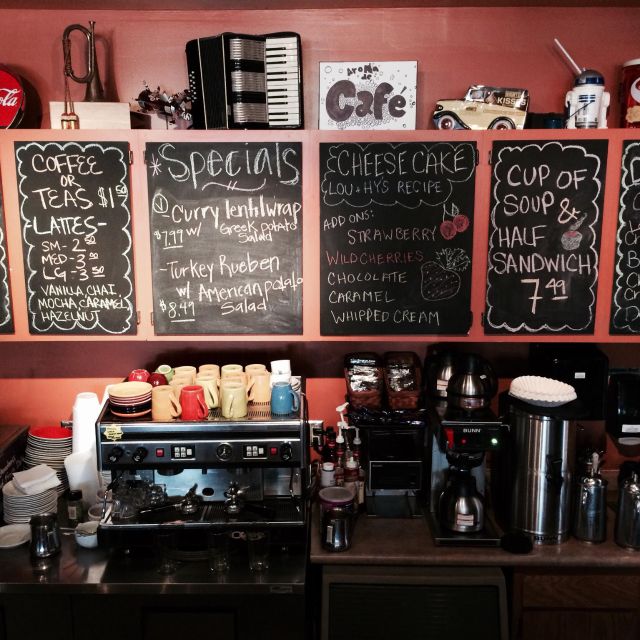 Coca-Cola
AROMA de
Café
KISS
COFFEE
OR
TEAS $1 50
LATTES-
SM- 2 50
MED- 3 00
LG - 3 50
VANILLA, CHAI,
MOCHA, CARAMEL
HAZELNUT
* Specials
① Curry lentil wrap
$7.99 w/ Greek potato
Salad
~Turkey Rueben
w/ American potato
$8.49 Salad
CHEESE CAKE
LOU & HY'S RECIPE
ADD ONS:
STRAWBERRY
WILD CHERRIES
CHOCOLATE
CARAMEL
WHIPPED CREAM
CUP OF
SOUP &
HALF
SANDWICH
7.49
BUNN